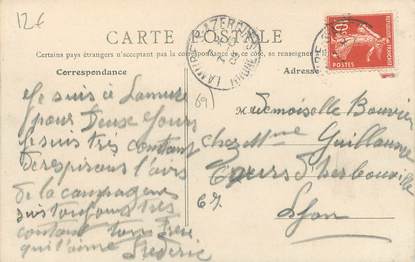 12€
CARTE POSTALE
Certains pays étrangers n'acceptant pas la correspondance au dos, se renseigner
Correspondance
Adresse
POSTES
69
Je suis à Lamure
pour deux Jours
Je suis très content
de respirer l'air
de la campagne
suis toujours très
content ton frère
qui t'aime Frédéric
Mademoiselle Bouvier
Chez Mme Guillaume
Cours d'herbouville
67
Lyon